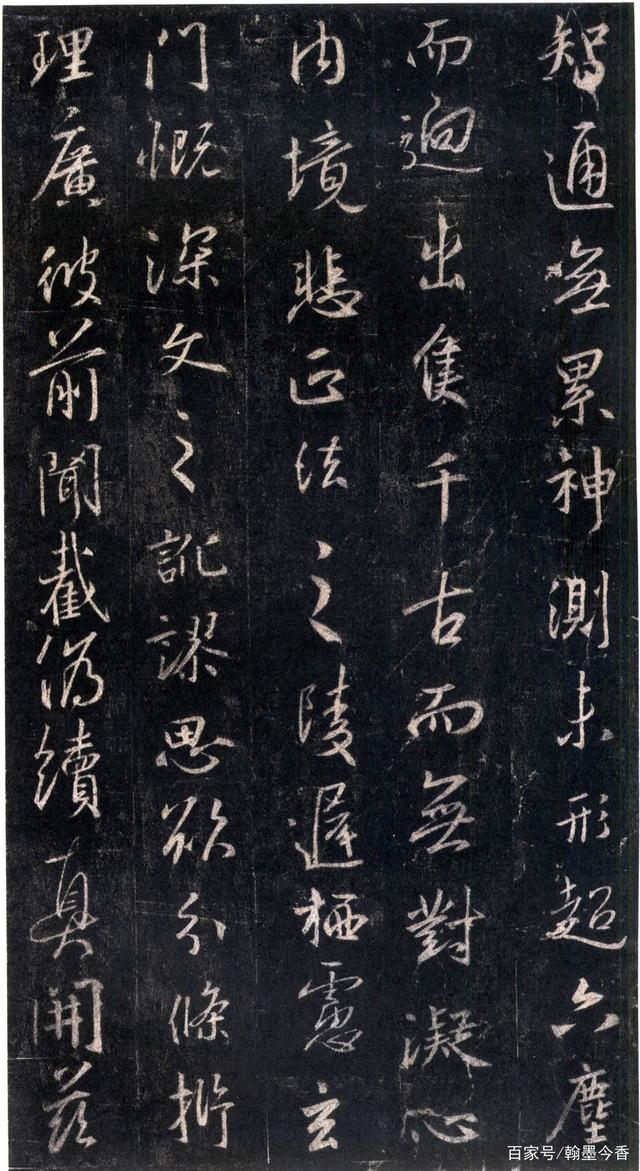 智通無累神測未形超六塵
而迥出隻千古而無對凝心
内境悲正法之陵遲栖慮玄
門慨深文之訛謬思欲分條析
理廣彼前聞截偽續真開茲
百家号/翰墨今香